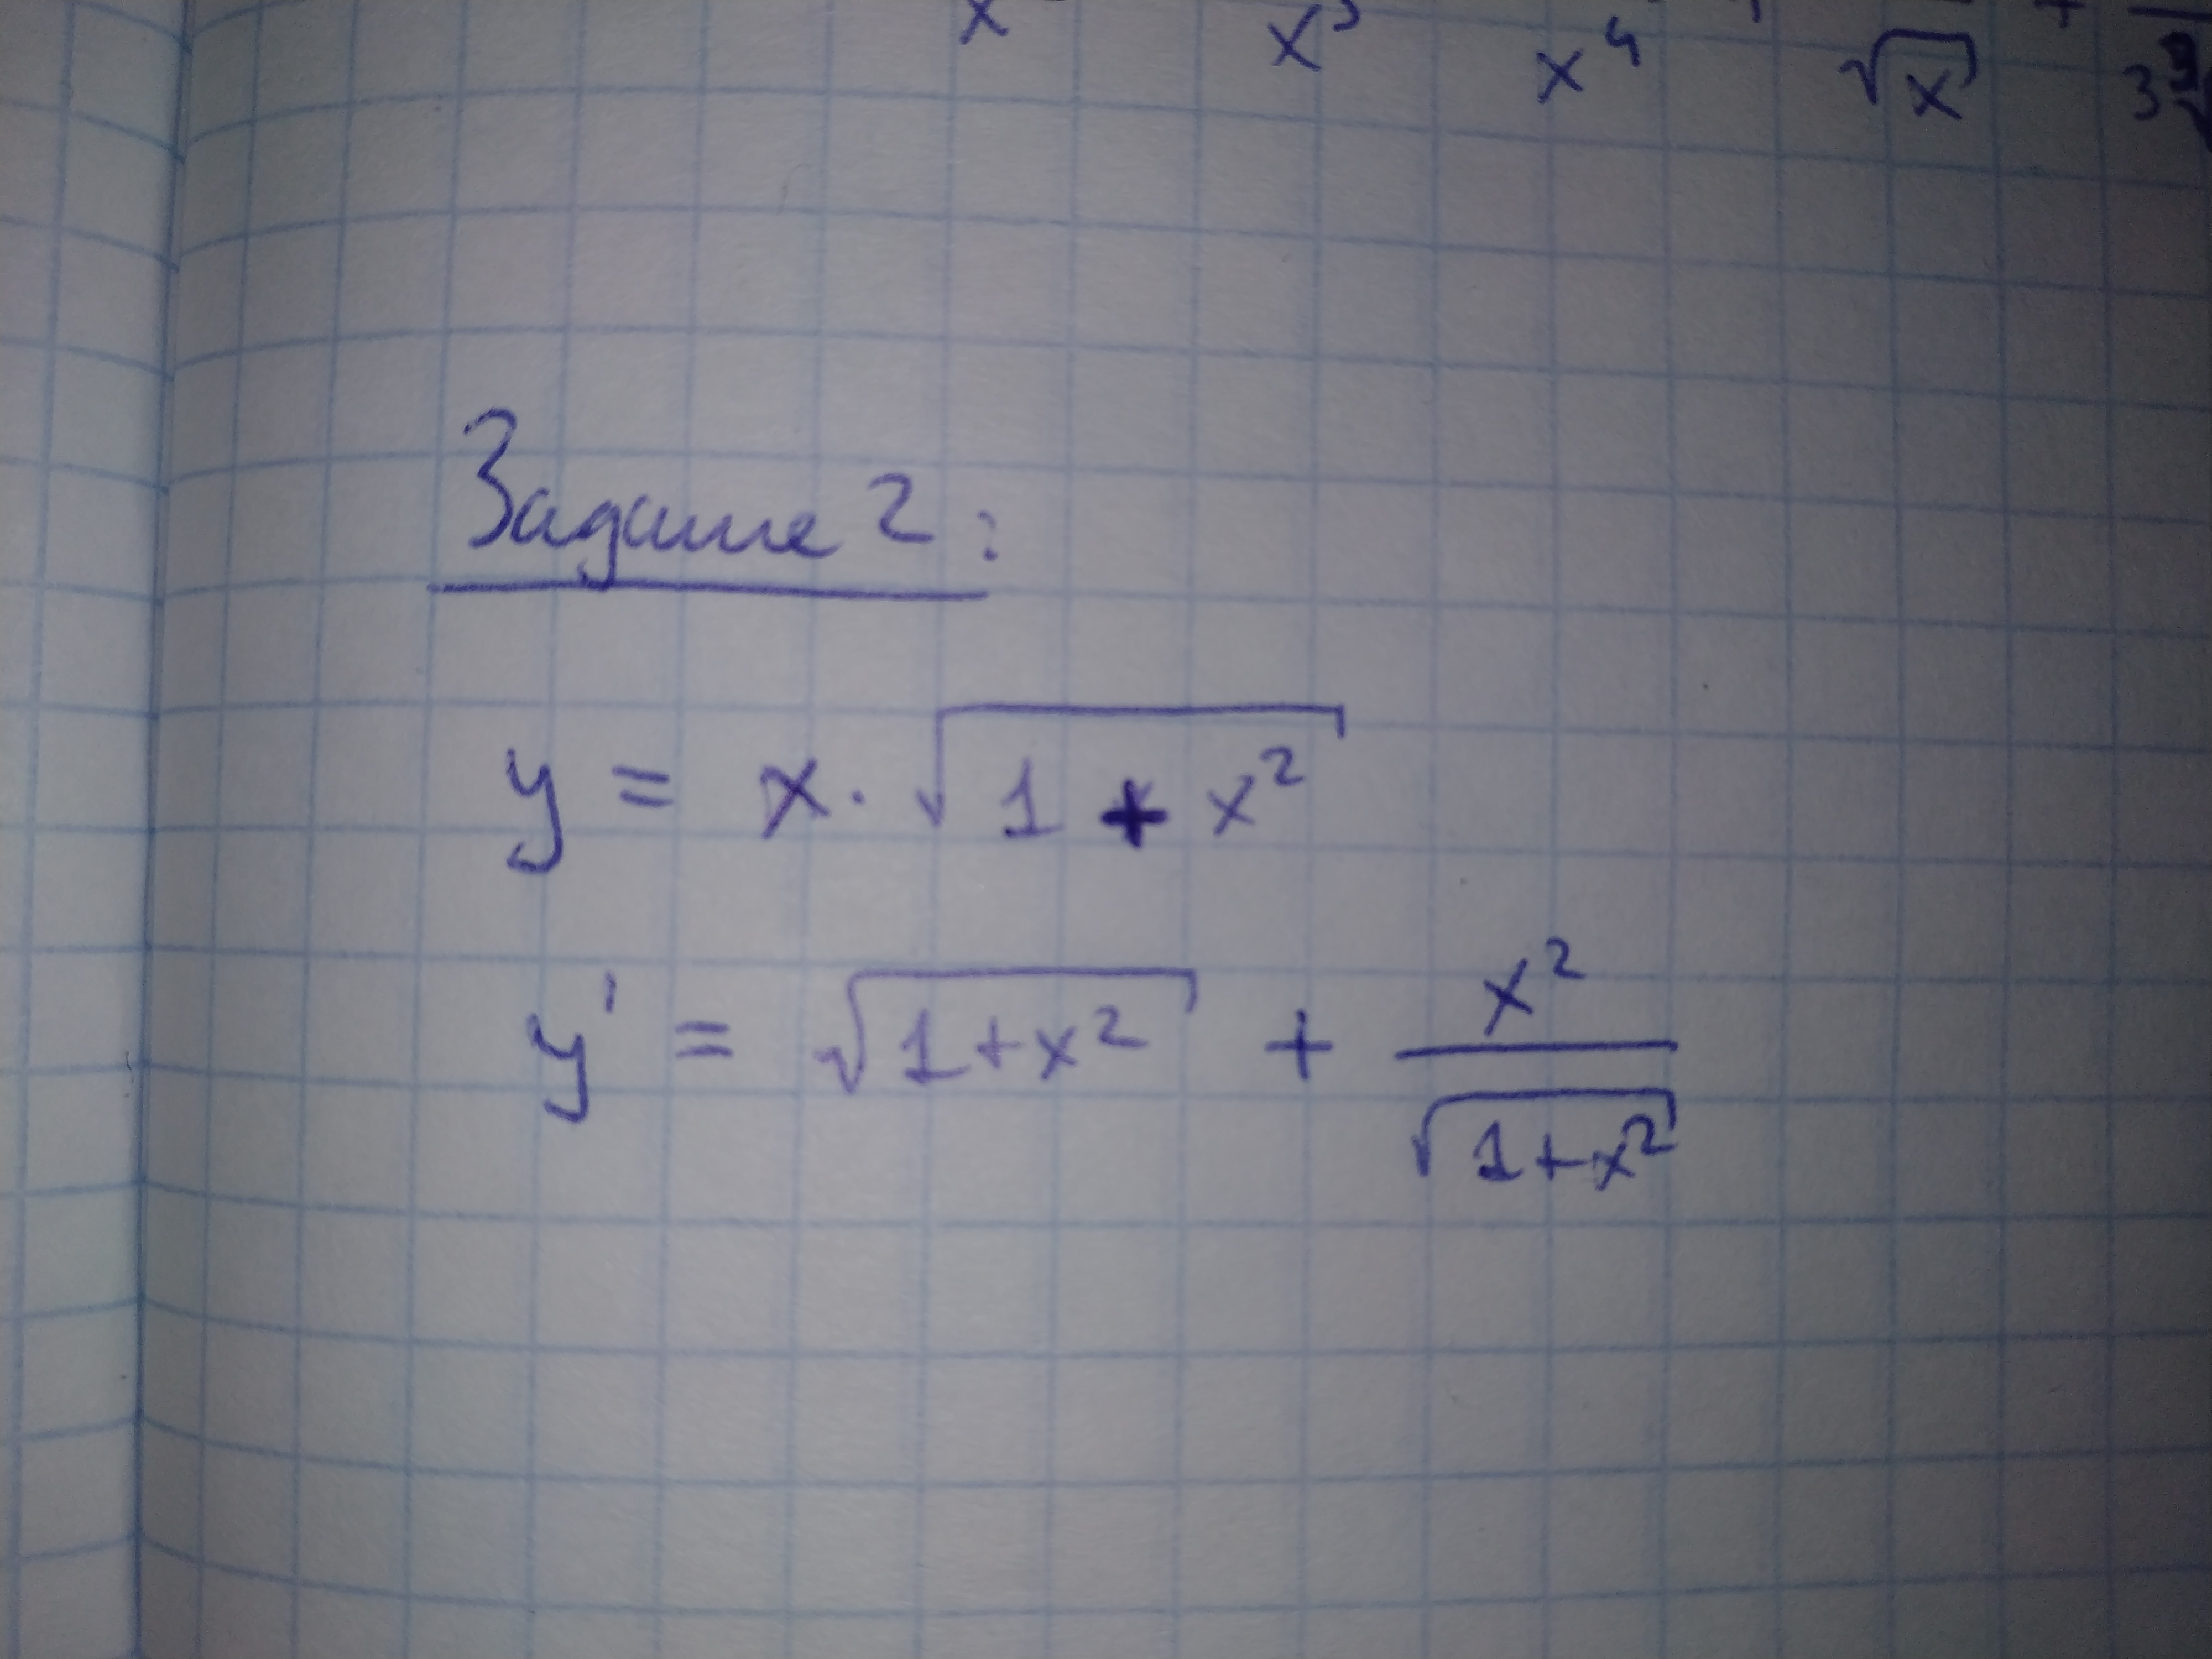 x x³ x⁴ √x + 3
Задание 2:
y = x · √(1 + x²)
y' = √(1+x²) + x²/√(1+x²)